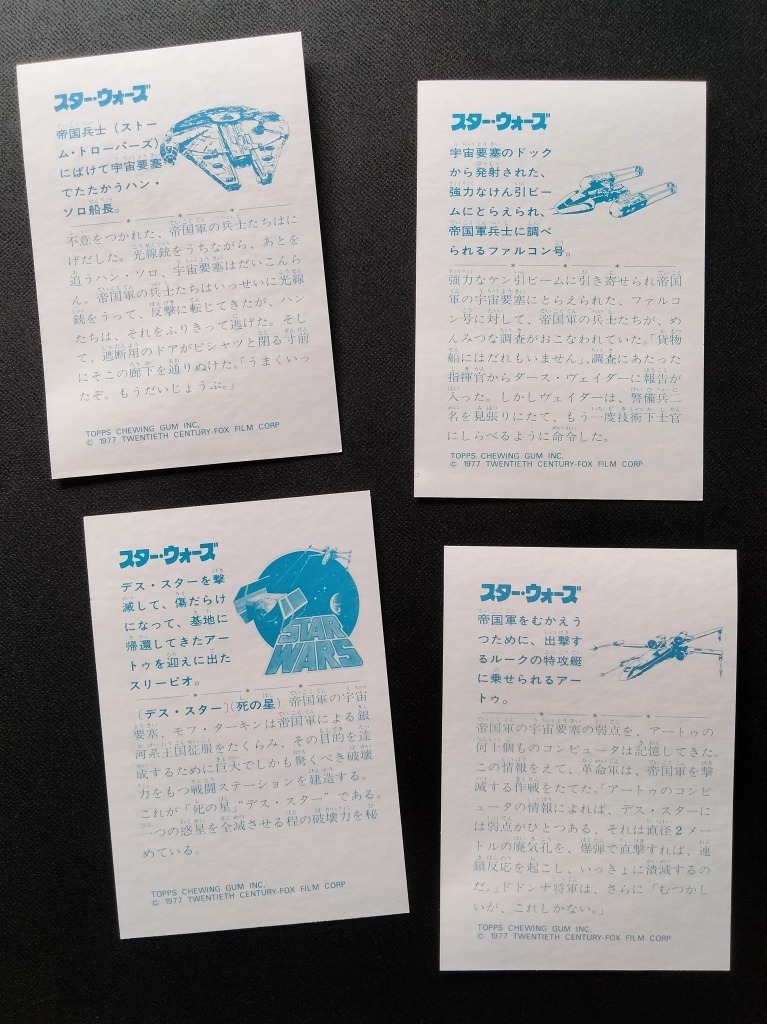 スター・ウォーズ
帝国兵士（ストー
ム・トローパーズ）
にばけて宇宙要塞
でたたかうハン・
ソロ船長。
不意をつかれた、帝国軍の兵士たちはに
げだした。光線銃をうちながら、あとを
追うハン・ソロ、宇宙要塞はだいこんら
ん。帝国軍の兵士たちはいっせいに光線
銃をうって、反撃に転じてきたが、ハン
たちは、それをふりきって逃げた。そし
て、遮断用のドアがピシャッと閉る寸前
にそこの廊下を通りぬけた。「うまくいっ
たぞ。もうだいじょうぶ。」
TOPPS CHEWING GUM INC.
© 1977 TWENTIETH CENTURY-FOX FILM CORP
スター・ウォーズ
宇宙要塞のドック
から発射された、
強力なけん引ビー
ムにとらえられ、
帝国軍兵士に調べ
られるファルコン号。
強力なケン引ビームに引き寄せられ帝国
軍の宇宙要塞にとらえられた、ファルコ
ン号に対して、帝国軍の兵士たちが、め
んみつな調査がおこなわれていた。「貨物
船にはだれもいません」、調査にあたった
指揮官からダース・ヴェイダーに報告が
入った。しかしヴェイダーは、警備兵二
名を見張りにたて、もう一度技術下士官
にしらべるように命令した。
TOPPS CHEWING GUM INC.
© 1977 TWENTIETH CENTURY-FOX FILM CORP
スター・ウォーズ
デス・スターを撃
滅して、傷だらけ
になって、基地に
帰還してきたアー
トゥを迎えに出た
スリーピオ。
STAR
WARS
〔デス・スター〕（死の星）帝国軍の宇宙
要塞、モフ・ターキンは帝国軍による銀
河系王国征服をたくらみ、その目的を達
成するために巨大でしかも驚くべき破壊
力をもつ戦闘ステーションを建造する。
これが「死の星」“デス・スター”である。
一つの惑星を全滅させる程の破壊力を秘
めている。
TOPPS CHEWING GUM INC.
© 1977 TWENTIETH CENTURY-FOX FILM CORP
スター・ウォーズ
帝国軍をむかえう
つために、出撃す
るルークの特攻艇
に乗せられるアー
トゥ。
帝国軍の宇宙要塞の弱点を、アートゥの
何十個ものコンピュータは記憶してきた。
この情報をえて、革命軍は、帝国軍を撃
滅する作戦をたてた。「アートゥのコンピ
ュータの情報によれば、デス・スターに
は弱点がひとつある、それは直径２メー
トルの廃気孔を、爆弾で直撃すれば、連
鎖反応を起こし、いっきょに潰滅するの
だ。」ドドンナ将軍は、さらに「むつかし
いが、これしかない。」
TOPPS CHEWING GUM INC.
© 1977 TWENTIETH CENTURY-FOX FILM CORP